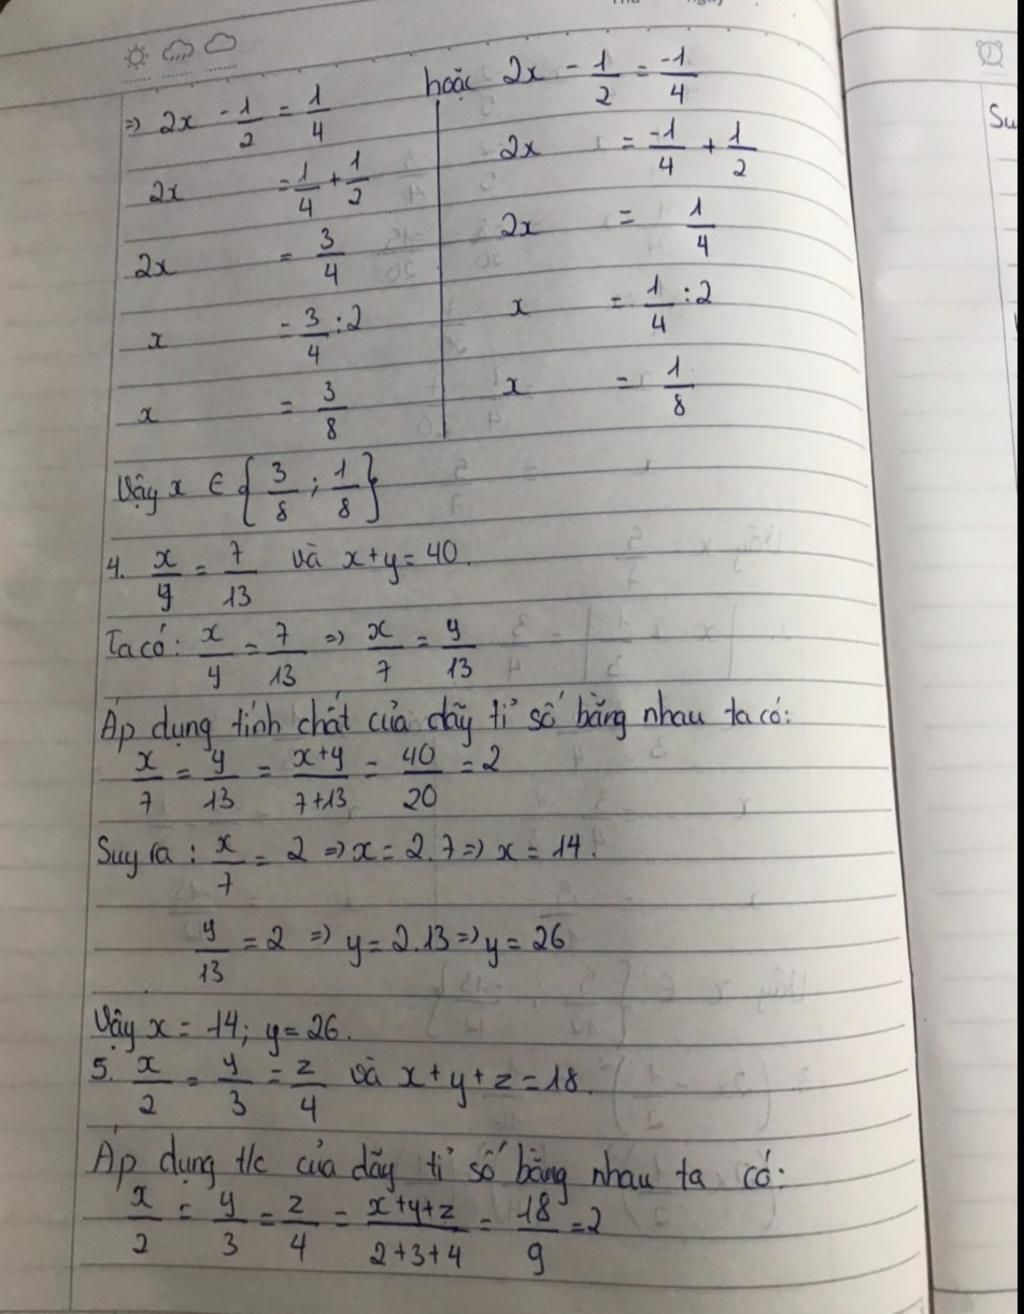 => 2x - 1/2 = 1/4 hoặc 2x - 1/2 = -1/4
2x = 1/4 + 1/2
2x = -1/4 + 1/2
2x = 3/4
2x = 1/4
x = 3/4 : 2
x = 1/4 : 2
x = 3/8
x = 1/8
Vậy x ∈ {3/8 ; 1/8}
4. x/y = 7/13 và x+y = 40.
Ta có: x/y = 7/13 => x/7 = y/13
Áp dụng tính chất của dãy tỉ số bằng nhau ta có:
x/7 = y/13 = x+y/7+13 = 40/20 = 2
Suy ra : x/7 = 2 => x = 2.7 => x = 14.
y/13 = 2 => y = 2.13 => y = 26
Vậy x = 14; y = 26.
5. x/2 = y/3 = z/4 và x+y+z = 18.
Áp dụng t/c của dãy tỉ số bằng nhau ta có:
x/2 = y/3 = z/4 = x+y+z/2+3+4 = 18/9 = 2
Su